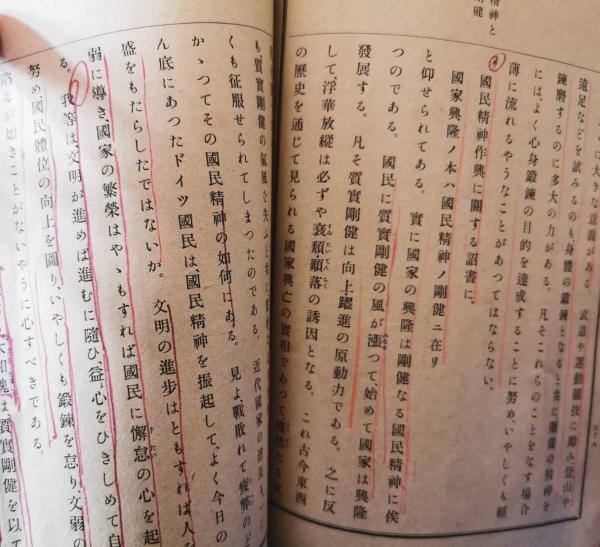 精神と
剛健
いに大きな意義がある。武道や運動競技に励み、登山や
遠足などを試みるのも、身體の鍛鍊となると共に剛健の精神を
鍊磨するのに多大の力がある。凡そこれらのことをなす場合
には、よく心身鍛鍊の目的を達成することに努め、いやしくも輕
薄に流れるやうなことがあつてはならない。
國民精神作興に關する詔書に、
國家興隆ノ本ハ國民精神ノ剛健ニ在リ
と仰せられてある。實に國家の興隆は剛健なる國民精神に俟
つのである。國民に質實剛健の風が漲つて、始めて國家は興隆
發展する。凡そ質實剛健は向上躍進の原動力である。之に反
して、浮華放縱は必ずや衰頽顚落の誘因となる。これ古今東西
の歷史を通じて見られる國家興亡の實相であつて、
も質實剛健の氣風を失ふと共に
くも征服せられてしまつたのである。近代國家の消長も一に
かゝつてその國民精神の如何にある。見よ、戰敗れて疲弊のど
ん底にあつたドイツ國民は、國民精神を振起して、よく今日の
盛をもたらしたではないか。文明の進步はともすれば人を
弱に導き、國家の繁榮はやゝもすれば國民に懈怠の心を起
る。我等は文明が進めば進むに隨ひ、益〻心をひきしめて自
努め、國民體位の向上を圖り、いやしくも鍛鍊を怠り、文弱の
陷るが如きことがないやうに心すべきである。
大和魂は、質實剛健を以て